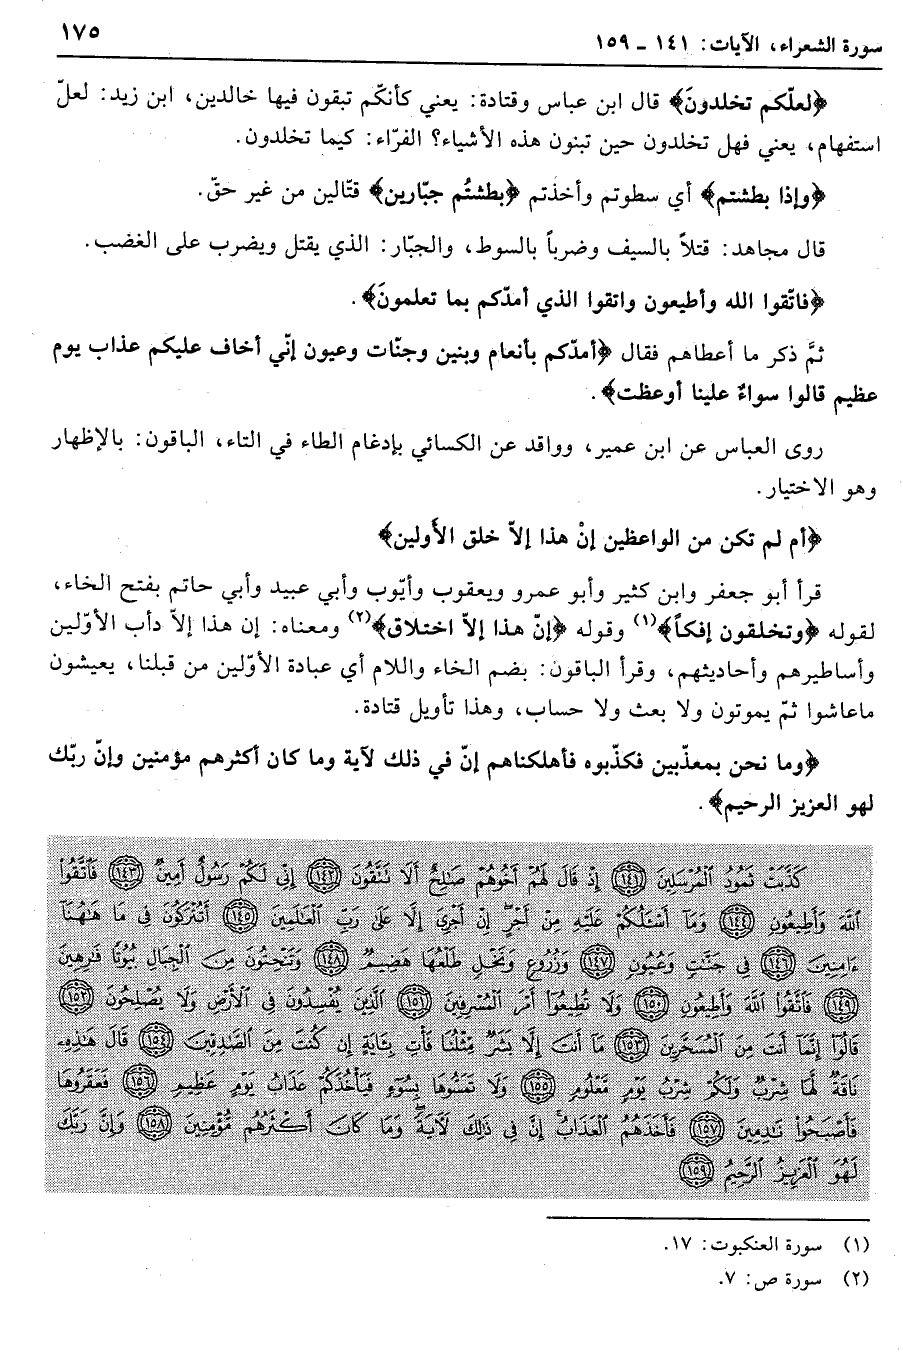 سورة الشعراء، الآيات: ١٤١ ـ ١٥٩
١٧٥
﴿لعلّكم تخلدونَ﴾ قال ابن عباس وقتادة: يعني كأنكّم تبقون فيها خالدين، ابن زيد: لعلّ
استفهام، يعني فهل تخلدون حين تبنون هذه الأشياء؟ الفرّاء: كيما تخلدون.
﴿وإذا بطشتم﴾ أي سطوتم وأخذتم ﴿بطشتُم جبّارين﴾ قتّالين من غير حقّ.
قال مجاهد: قتلاً بالسيف وضرباً بالسوط، والجبّار: الذي يقتل ويضرب على الغضب.
﴿فاتّقوا الله وأطيعون واتقوا الذي أمدّكم بما تعلمونَ﴾.
ثمَّ ذكر ما أعطاهم فقال ﴿أمدّكم بأنعام وبنين وجنّات وعيون إنّي أخاف عليكم عذاب يوم
عظيم قالوا سواءٌ علينا أوعظت﴾.
روى العباس عن ابن عمير، وواقد عن الكسائي بإدغام الطاء في التاء، الباقون: بالإظهار
وهو الاختيار.
﴿أم لم تكن من الواعظين إنْ هذا إلاّ خلق الأَولين﴾
قرأ أبو جعفر وابن كثير وأبو عمرو ويعقوب وأيّوب وأبي عبيد وأبي حاتم بفتح الخاء،
لقوله ﴿وتخلقون إفكاً﴾(١) وقوله ﴿إنّ هذا إلاّ اختلاق﴾(٢) ومعناه: إن هذا إلاّ دأب الأوّلين
وأساطيرهم وأحاديثهم، وقرأ الباقون: بضم الخاء واللام أي عبادة الأوّلين من قبلنا، يعيشون
ماعاشوا ثمّ يموتون ولا بعث ولا حساب، وهذا تأويل قتادة.
﴿وما نحن بمعذّبين فكذّبوه فأهلكناهم إنّ في ذلك لآية وما كان أكثرهم مؤمنين وإنّ ربّك
لهو العزيز الرحيم﴾.
كَذَّبَتْ ثَمُودُ الْمُرْسَلِينَ ﴿١٤١﴾ إِذْ قَالَ لَهُمْ أَخُوهُمْ صَالِحٌ أَلَا تَتَّقُونَ ﴿١٤٢﴾ إِنِّي لَكُمْ رَسُولٌ أَمِينٌ ﴿١٤٣﴾ فَاتَّقُوا
اللَّهَ وَأَطِيعُونِ ﴿١٤٤﴾ وَمَا أَسْئَلُكُمْ عَلَيْهِ مِنْ أَجْرٍ إِنْ أَجْرِىَ إِلَّا عَلَى رَبِّ الْعَالَمِينَ ﴿١٤٥﴾ أَتُتْرَكُونَ فِي مَا هَاهُنَا
ءَامِنِينَ ﴿١٤٦﴾ فِي جَنَّاتٍ وَعُيُونٍ ﴿١٤٧﴾ وَزُرُوعٍ وَنَخْلٍ طَلْعُهَا هَضِيمٌ ﴿١٤٨﴾ وَتَنْحِتُونَ مِنَ الْجِبَالِ بُيُوتًا فَارِهِينَ
﴿١٤٩﴾ فَاتَّقُوا اللَّهَ وَأَطِيعُونِ ﴿١٥٠﴾ وَلَا تُطِيعُوا أَمْرَ الْمُسْرِفِينَ ﴿١٥١﴾ الَّذِينَ يُفْسِدُونَ فِي الْأَرْضِ وَلَا يُصْلِحُونَ ﴿١٥٢﴾
قَالُوا إِنَّمَا أَنتَ مِنَ الْمُسَحَّرِينَ ﴿١٥٣﴾ مَا أَنتَ إِلَّا بَشَرٌ مِّثْلُنَا فَأْتِ بِئَايَةٍ إِن كُنتَ مِنَ الصَّادِقِينَ ﴿١٥٤﴾ قَالَ هَذِهِ
نَاقَةٌ لَّهَا شِرْبٌ وَلَكُمْ شِرْبُ يَوْمٍ مَّعْلُومٍ ﴿١٥٥﴾ وَلَا تَمَسُّوهَا بِسُوءٍ فَيَأْخُذَكُمْ عَذَابُ يَوْمٍ عَظِيمٍ ﴿١٥٦﴾ فَعَقَرُوهَا
فَأَصْبَحُوا نَادِمِينَ ﴿١٥٧﴾ فَأَخَذَهُمُ الْعَذَابُ إِنَّ فِي ذَلِكَ لَآيَةً وَمَا كَانَ أَكْثَرُهُم مُّؤْمِنِينَ ﴿١٥٨﴾ وَإِنَّ رَبَّكَ
لَهُوَ الْعَزِيزُ الرَّحِيمُ ﴿١٥٩﴾
(١) سورة العنكبوت: ١٧.
(٢) سورة ص: ٧.